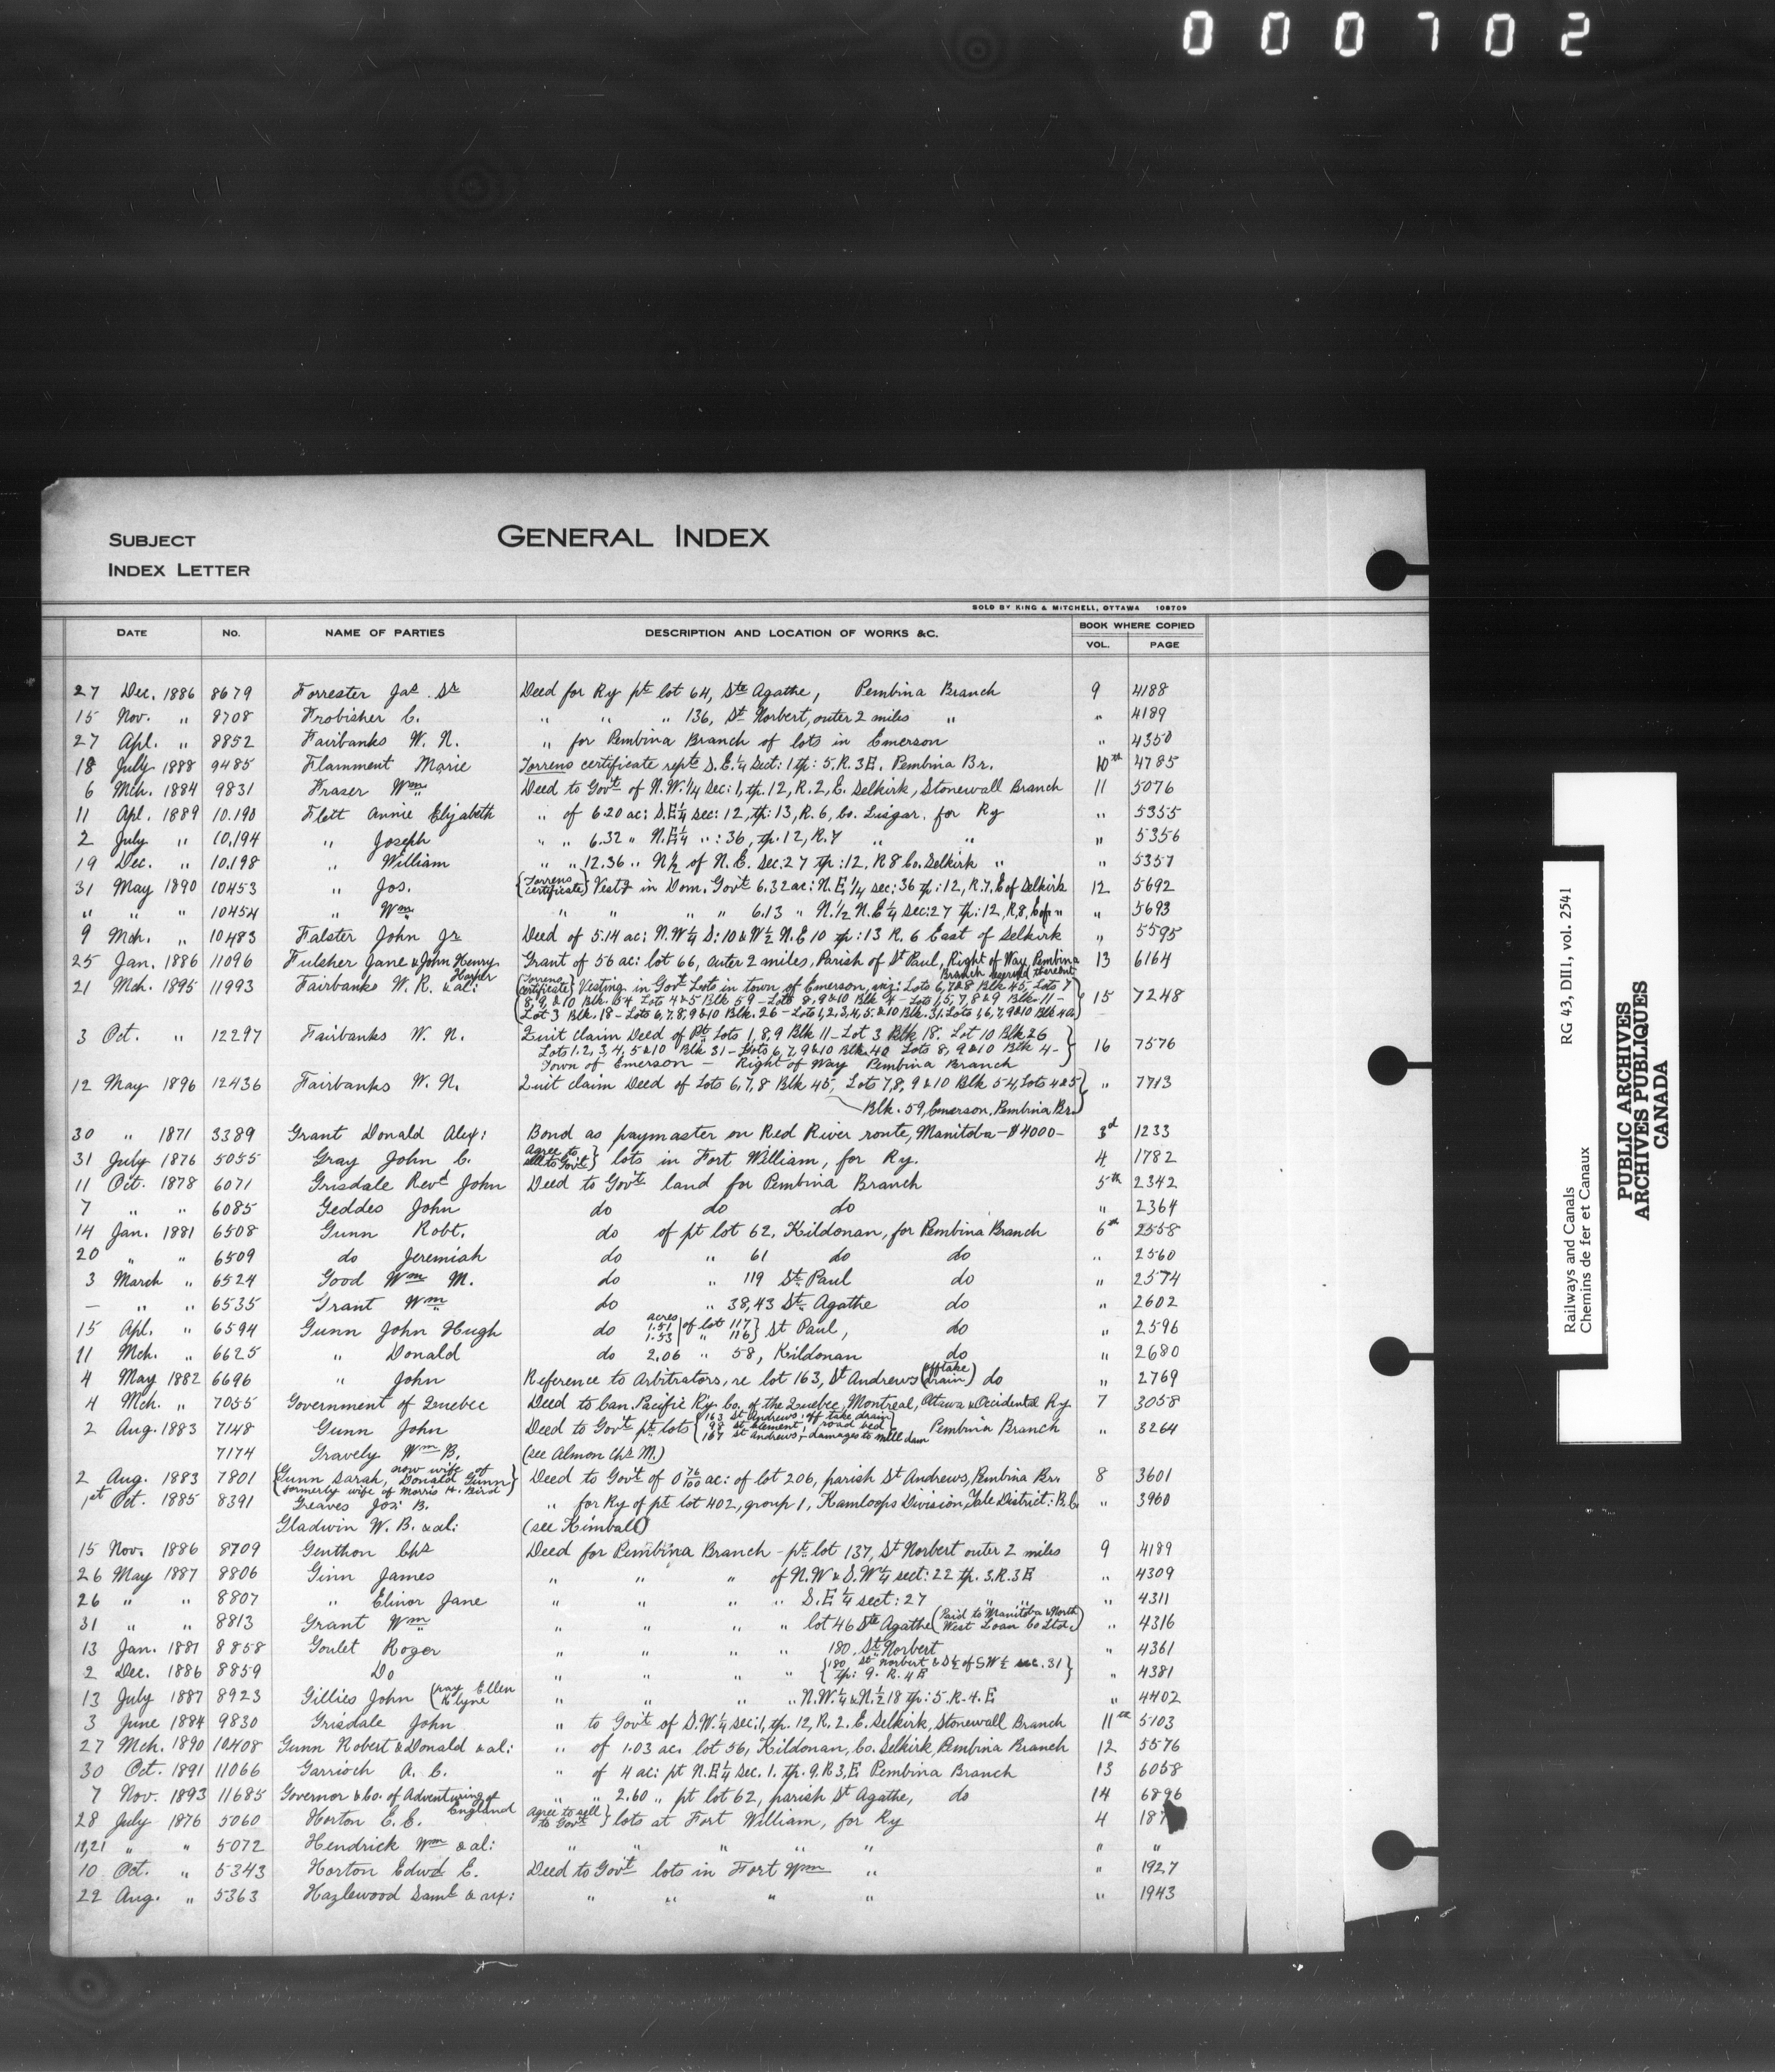 000702
SUBJECT
GENERAL INDEX
INDEX LETTER
SOLD BY KING & MITCHELL, OTTAWA 108709
DATE NO. NAME OF PARTIES DESCRIPTION AND LOCATION OF WORKS &C. BOOK WHERE COPIED
VOL. PAGE
27 Dec. 1886 8679 Forrester Jas. Sr Deed for Ry pt lot 64, Ste Agathe, Pembina Branch 9 4188
15 Nov. " 8708 Frobisher C. " " " 136, St Norbert, outer 2 miles " " 4189
27 Apl. " 8852 Fairbanks W. N. " for Pembina Branch of lots in Emerson " 4350
18 July 1888 9485 Flamment Marie Torrens certificate repte S.E.¼ Sect: 1 tp: 5. R. 3E. Pembina Br. 10th 4785
6 Mch. 1884 9831 Fraser Wm Deed to Govt of N.W.¼ Sec: 1, tp. 12, R. 2, E. Selkirk, Stonewall Branch 11 5076
11 Apl. 1889 10.190 Flett Annie Elizabeth " of 6.20 ac: S.E¼ sec: 12, tp: 13, R. 6, Co. Lisgar. for Ry " 5355
2 July " 10,194 " Joseph " " 6.32 " N.E¼ " : 36, tp. 12, R. 7 " " " 5356
19 Dec. " 10,198 " William " " 12.36 " N½ of N. E. Sec. 27 tp: 12, R 8 Co. Selkirk " " 5357
31 May 1890 10453 " Jos. {Torrens certificate} Vestg in Dom. Govt 6.32 ac: N.E.¼ sec: 36 tp: 12, R. 7. E of Selkirk 12 5692
" " " 10454 " Wm " " " " 6.13 " N.½ N.E¼ Sec: 27 tp: 12, R, 8, E of " " 5693
9 Mch. " 10483 Falster John Jr Deed of 5.14 ac: N.W¼ S: 10 & W½ N.E 10 tp: 13 R. 6 East of Selkirk " 5595
25 Jan. 1886 11096 Fulsher Jane & John Henry Harper Grant of 56 ac: lot 66, outer 2 miles, Parish of St Paul, Right of Way, Pembina Branch reserved thereout 13 6164
21 Mch. 1895 11993 Fairbanks W. R. & al: {Torrens certificate} Vesting in Govt Lots in town of Emerson, viz: Lots 6, 7 & 8 Blk 45, Lots 7
8, 9, & 10 Blk. 54, Lots 4 & 5 Blk 59 - Lots 8, 9 & 10 Blk 4 - Lots 1, 5, 7, 8 & 9 Blk - 11 - 15 7248
Lot 3 Blk. 18 - Lots 6, 7, 8, 9 & 10 Blk. 26 - Lots 1, 2, 3, 4, 5, & 10 Blk. 31, Lots 1, 6, 7, 9 & 10 Blk 40
3 Oct. " 12297 Fairbanks W. N. Quit claim Deed of Pt Lots 1, 8, 9 Blk 11 - Lot 3 Blk 18. Lot 10 Blk 26
Lots 1. 2, 3, 4, 5 & 10 Blk 31 - Lots 6, 7, 9 & 10 Blk. 40 Lots 8, 9 & 10 Blk 4 - 16 7576
Town of Emerson - Right of Way Pembina Branch
12 May 1896 12436 Fairbanks W. N. Quit claim Deed of Lots 6, 7, 8 Blk 45, Lots 7, 8, 9 & 10 Blk 54, Lots 4 & 5 " 7713
Blk. 59, Emerson, Pembina Br.
30 " 1871 3389 Grant Donald Alex: Bond as paymaster on Red River route, Manitoba - $4000 - 3d 1233
31 July 1876 5055 Gray John C. {Agree to sell to Govt} lots in Fort William, for Ry. 4 1782
11 Oct. 1878 6071 Grisdale Revd John Deed to Govt land for Pembina Branch 5th 2342
7 " " 6085 Geddes John do do do " 2364
14 Jan. 1881 6508 Gunn Robt. do of pt lot 62, Kildonan, for Pembina Branch 6th 2558
20 " " 6509 do Jeremiah do " 61 do do " 2560
3 March " 6524 Good Wm M. do " 119 St. Paul do " 2574
- " " 6535 Grant Wm do " 38, 43 St. Agathe do " 2602
15 Apl. " 6594 Gunn John Hugh do acres 1.51 of lot 117 1.53 " 116 } St Paul, do " 2596
11 Mch. " 6625 " Donald do 2.06 " 58, Kildonan do " 2680
4 May 1882 6696 " John Reference to Arbitrators, re lot 163, St Andrews (off take drain) do " 2769
4 Mch. " 7055 Government of Quebec Deed to Can. Pacific Ry. Co. of the Quebec, Montreal, Ottawa & Occidental Ry 7 3058
2 Aug. 1883 7148 Gunn John Deed to Govt pt lots {163 St Andrews: off take drain 98 St Clement, road bed 167 St Andrews, - damages to mill dam Pembina Branch " 3264
7174 Gravely Wm B. (see Almon Chs M.)
2 Aug. 1883 7801 {Gunn Sarah, now wife of Donald Gunn formerly wife of Morris H. Bird} Deed to Govt of 0 76/100 ac: of lot 206, parish St Andrews, Pembina Br. 8 3601
1st Oct. 1885 8391 Greaves Jos: B. " for Ry of pt lot 402, group 1, Kamloops Division, Yale District: B.C. " 3960
Gladwin W. B. & al: (see Kimball)
15 Nov. 1886 8709 Genthon Chs Deed for Pembina Branch - pt lot 137, St Norbert outer 2 miles 9 4189
26 May 1887 8806 Ginn James " " " of N.W & S.W¼ sect: 22 tp. 3. R. 3 E " 4309
26 " " 8807 " Elinor Jane " " " " S.E¼ sect: 27 " " " 4311
31 " " 8813 Grant Wm " " " " lot 46 Ste Agathe (Paid to Manitoba & North West Loan Co Ltd.) " 4316
13 Jan. 1887 8858 Goulet Roger " " " " 180, St. Norbert " 4361
2 Dec. 1886 8859 Do " " " " {180 St Norbert & S½ of SW¼ sec. 31 tp: 9. R. 4 E} " 4381
13 July 1887 8923 Gillies John (pay Ellen Klyne " " " " N.W.¼ & N.½ 18 tp: 5. R. 4. E " 4402
3 June 1884 9830 Grisdale John " to Govt of S.W.¼ sec: 1, tp. 12, R. 2. E. Selkirk, Stonewall Branch 11th 5103
27 Mch. 1890 10408 Gunn Robert & Donald & al: " of 1.03 ac. lot 56, Kildonan, Co. Selkirk, Pembina Branch 12 5576
30 Oct. 1891 11066 Garrioch A. C. " of 4 ac: pt N.E¼ Sec. 1. tp. 9. R 3, E. Pembina Branch 13 6058
7 Nov. 1893 11685 Governor & Co. of Adventuring of England " " 2.60 " pt lot 62, parish St Agathe, do 14 6896
28 July 1876 5060 Horton E. E. {agree to sell to Govt} lots at Fort William, for Ry 4 187
11,21 " " 5072 Hendrick Wm & al: " " " " " " "
10 Oct. " 5343 Horton Edwd E. Deed to Govt lots in Fort Wm " " 1927
22 Aug. " 5363 Hazlewood Saml & ux: " " " " " 1943
Railways and Canals RG 43, DIII, vol. 2541
Chemins de fer et Canaux
PUBLIC ARCHIVES
ARCHIVES PUBLIQUES
CANADA